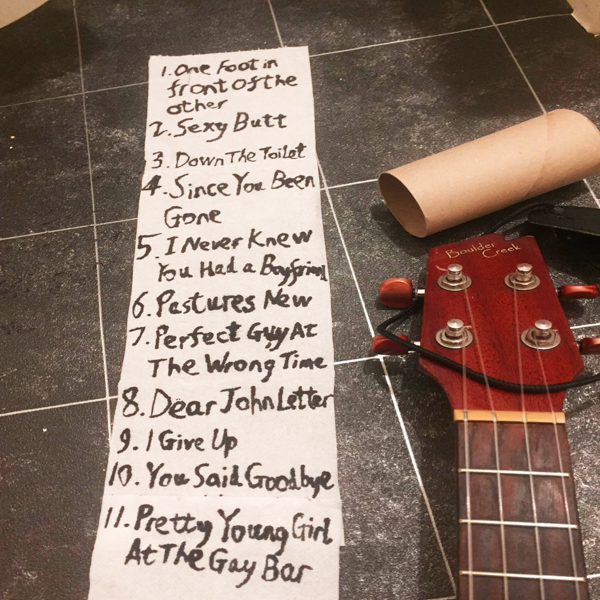 1. One Foot in
front Of the
other
2. Sexy Butt
3. Down The Toilet
4. Since You Been
Gone
5. I Never Knew
You Had a Boyfriend
6. Pastures New
7. Perfect Guy At
The Wrong Time
8. Dear John Letter
9. I Give Up
10. You Said Goodbye
11. Pretty Young Girl
At The Gay Bar
Boulder
Creek